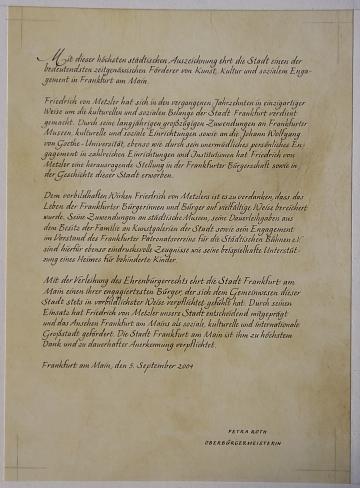 Mit dieser höchsten städtischen Auszeichnung ehrt die Stadt einen der
bedeutendsten zeitgenössischen Förderer von Kunst, Kultur und sozialem Enga-
gement in Frankfurt am Main.
Friedrich von Metzler hat sich in den vergangenen Jahrzehnten in einzigartiger
Weise um die kulturellen und sozialen Belange der Stadt Frankfurt verdient
gemacht. Durch seine langjährigen großzügigen Zuwendungen an Frankfurter
Museen, kulturelle und soziale Einrichtungen sowie an die Johann Wolfgang
von Goethe-Universität, ebenso wie durch sein unermüdliches persönliches En-
gagement in zahlreichen Einrichtungen und Institutionen hat Friedrich von
Metzler eine herausragende Stellung in der Frankfurter Bürgerschaft sowie in
der Geschichte dieser Stadt erworben.
Dem vorbildhaften Wirken Friedrich von Metzlers ist es zu verdanken, dass das
Leben der Frankfurter Bürgerinnen und Bürger auf vielfältige Weise bereichert
wurde. Seine Zuwendungen an städtische Museen, seine Dauerleihgaben aus
dem Besitz der Familie an Kunstgalerien der Stadt sowie sein Engagement
im Vorstand des Frankfurter Patronatsvereins für die Städtischen Bühnen e.V.
sind hierfür ebenso eindrucksvolle Zeugnisse wie seine beispielhafte Unterstüt-
zung eines Heimes für behinderte Kinder.
Mit der Verleihung des Ehrenbürgerrechts ehrt die Stadt Frankfurt am
Main einen ihrer engagiertesten Bürger, der sich dem Gemeinwesen dieser
Stadt stets in vorbildlichster Weise verpflichtet gefühlt hat. Durch seinen
Einsatz hat Friedrich von Metzler unsere Stadt entscheidend mitgeprägt
und das Ansehen Frankfurt am Mains als soziale, kulturelle und internationale
Großstadt gefördert. Die Stadt Frankfurt am Main ist ihm zu höchstem
Dank und zu dauerhafter Anerkennung verpflichtet.
Frankfurt am Main, den 5. September 2004
PETRA ROTH
OBERBÜRGERMEISTERIN